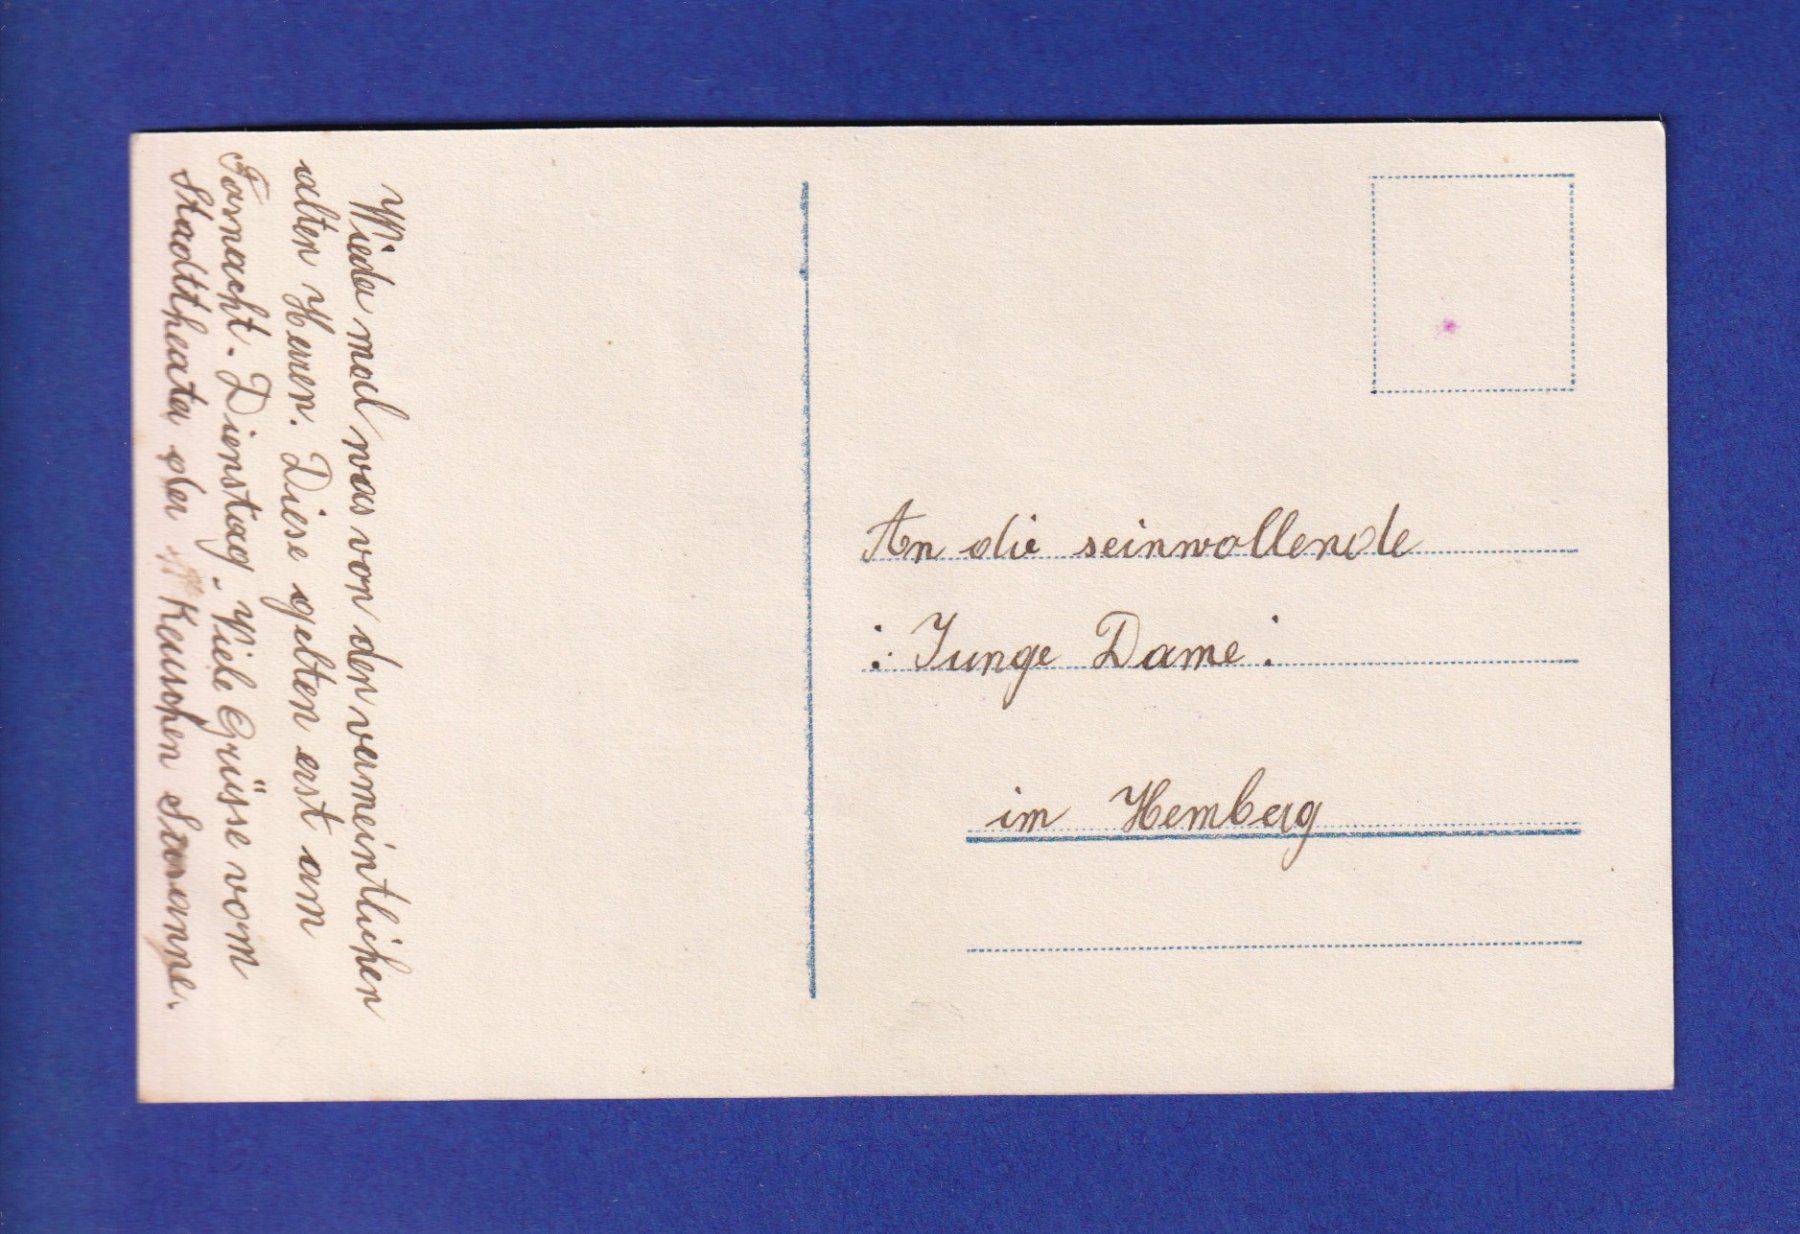 Wieder mal was von den vermeintlichen
alten Herren. Diese gelten erst am
Fasnacht. Dienstag. Viele Grüsse vom
Stadttheater der Keuschen Susanne.
An die seinwollende
: Junge Dame :
im Hemberg